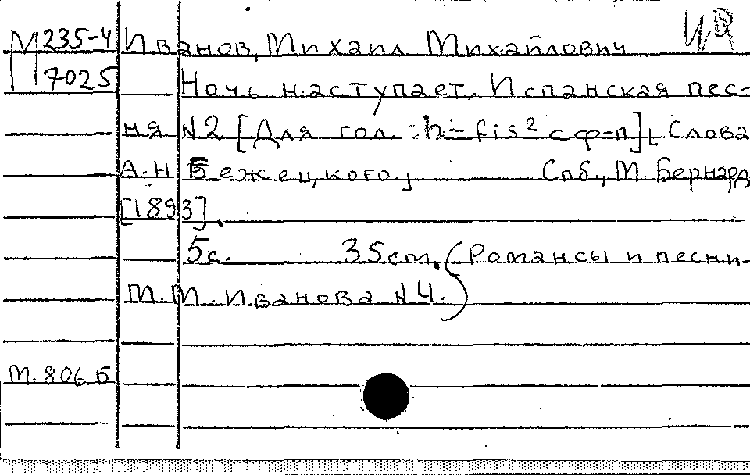 М 235-4 Иванов, Михаил Михайлович
П 7025 Ночь наступает. Испанская пес-
ня №2 [Для гол.: h-fis² с ф-п]. Слова
А.Н. Бежецкого. Спб., М. Бернард
[1893].
5с. 35cm. (Романсы и песни
М.М. Иванова №4.)
М. 806 Б